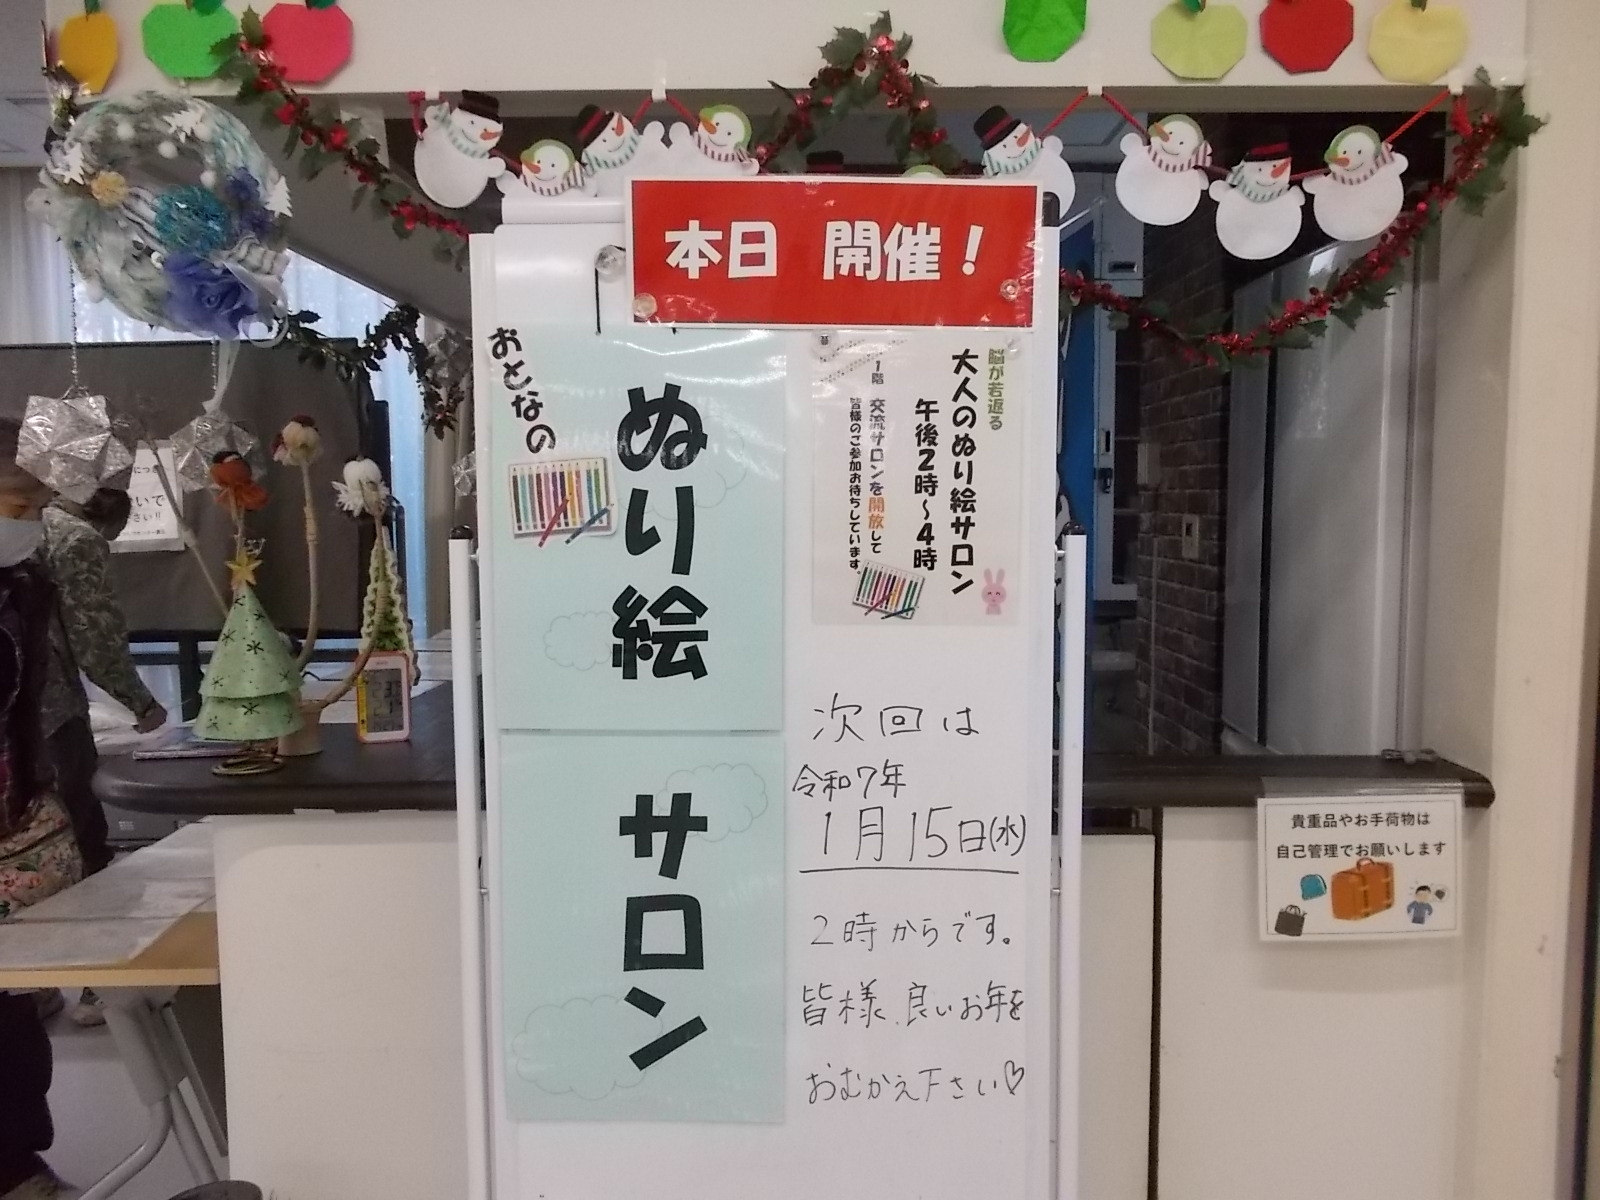 本日 開催!
おとなの
ぬり絵
サロン
脳が若返る
大人のぬり絵サロン
午後2時~4時
1階 交流サロンを開放して
皆様のご参加お待ちしています。
次回は
令和7年
1月15日(水)
2時からです。
皆様、良いお年を
おむかえ下さい♡
貴重品やお手荷物は
自己管理でお願いします